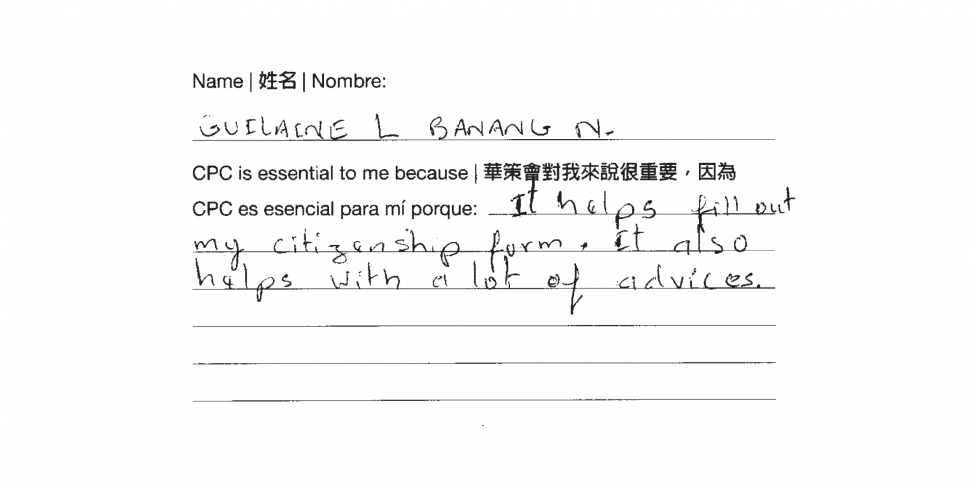 Name | 姓名 | Nombre:
GUILAINE L BANANG N.
CPC is essential to me because | 華策會對我來說很重要，因為
CPC es esencial para mí porque: It helps fill out
my citizenship form. It also
helps with a lot of advices.